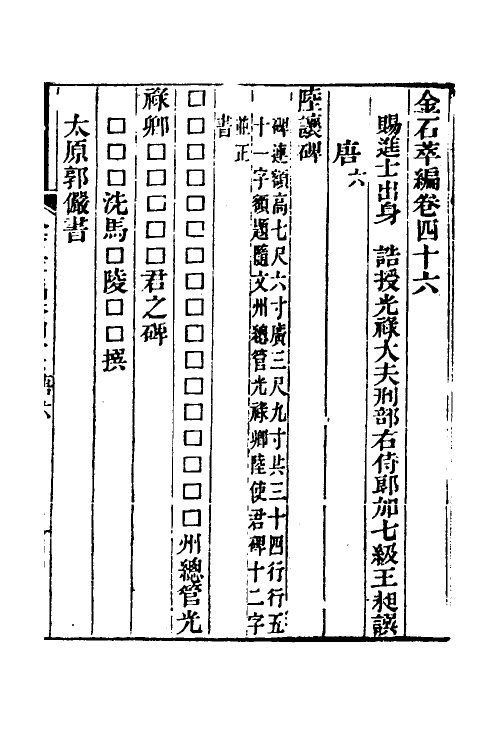 金石萃編卷四十六
賜進士出身　誥授光祿大夫刑部右侍郎加七級王昶譔
唐六
陸讓碑
碑連額高七尺六寸廣三尺九寸共三十四行行五
十一字額題隨文州總管光祿卿陸使君碑十二字
並正
書
□□□□□□□□□□□□□□□□□州總管光
祿卿□□□□□君之碑
□□□洗馬□陵□□撰
太原郭儼書